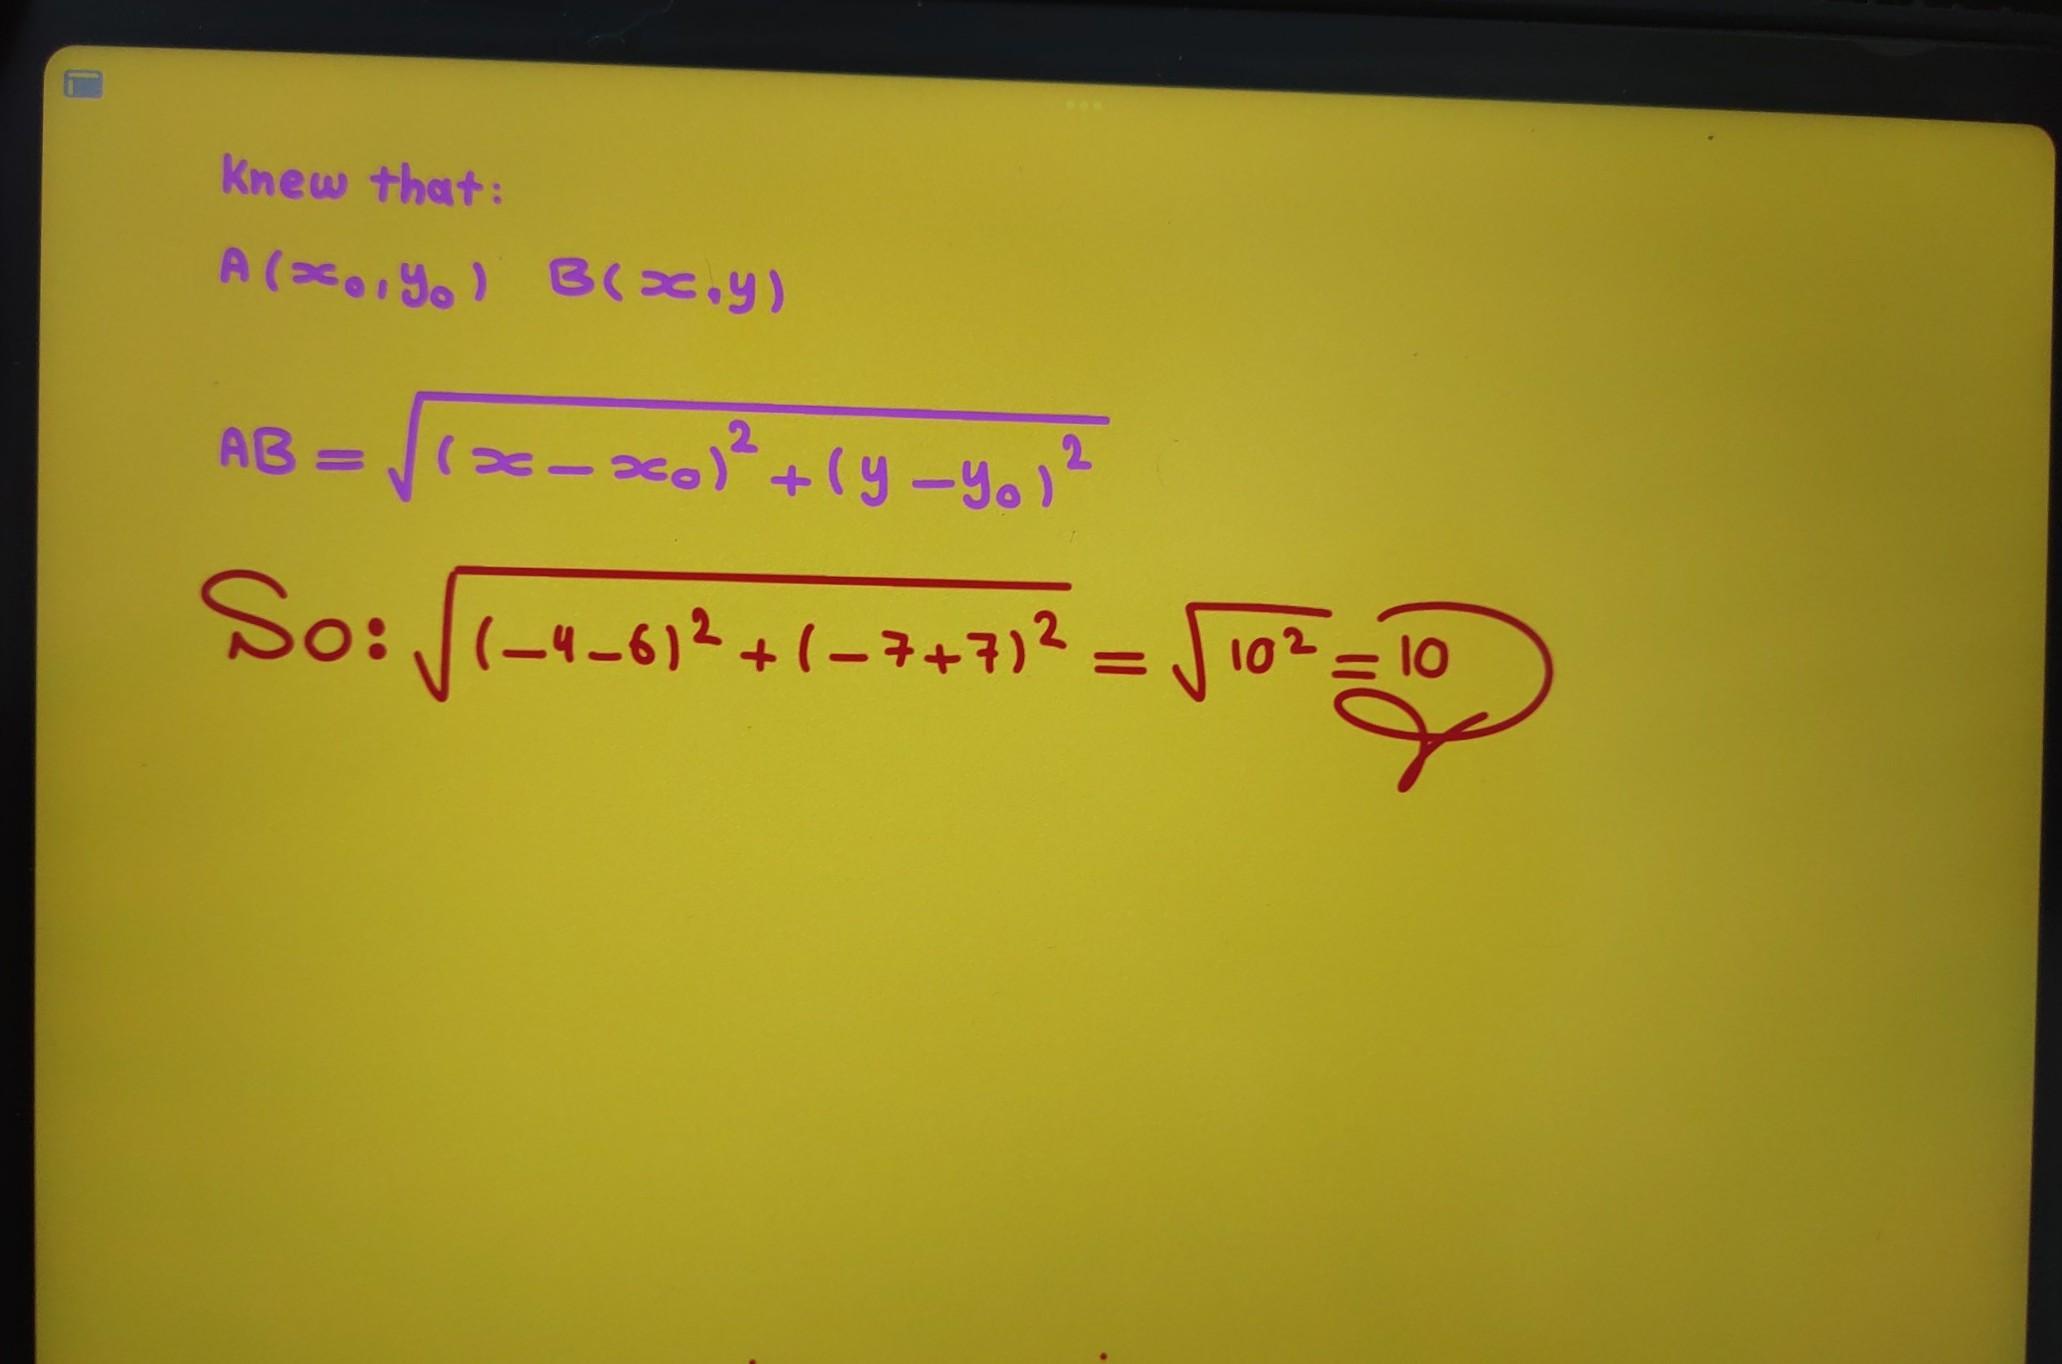 Knew that:
A(x₀,y₀) B(x,y)
AB = √((x – x₀)² + (y – y₀)²)
So: √((–4–6)² + (–7+7)²) = √(10²) = 10